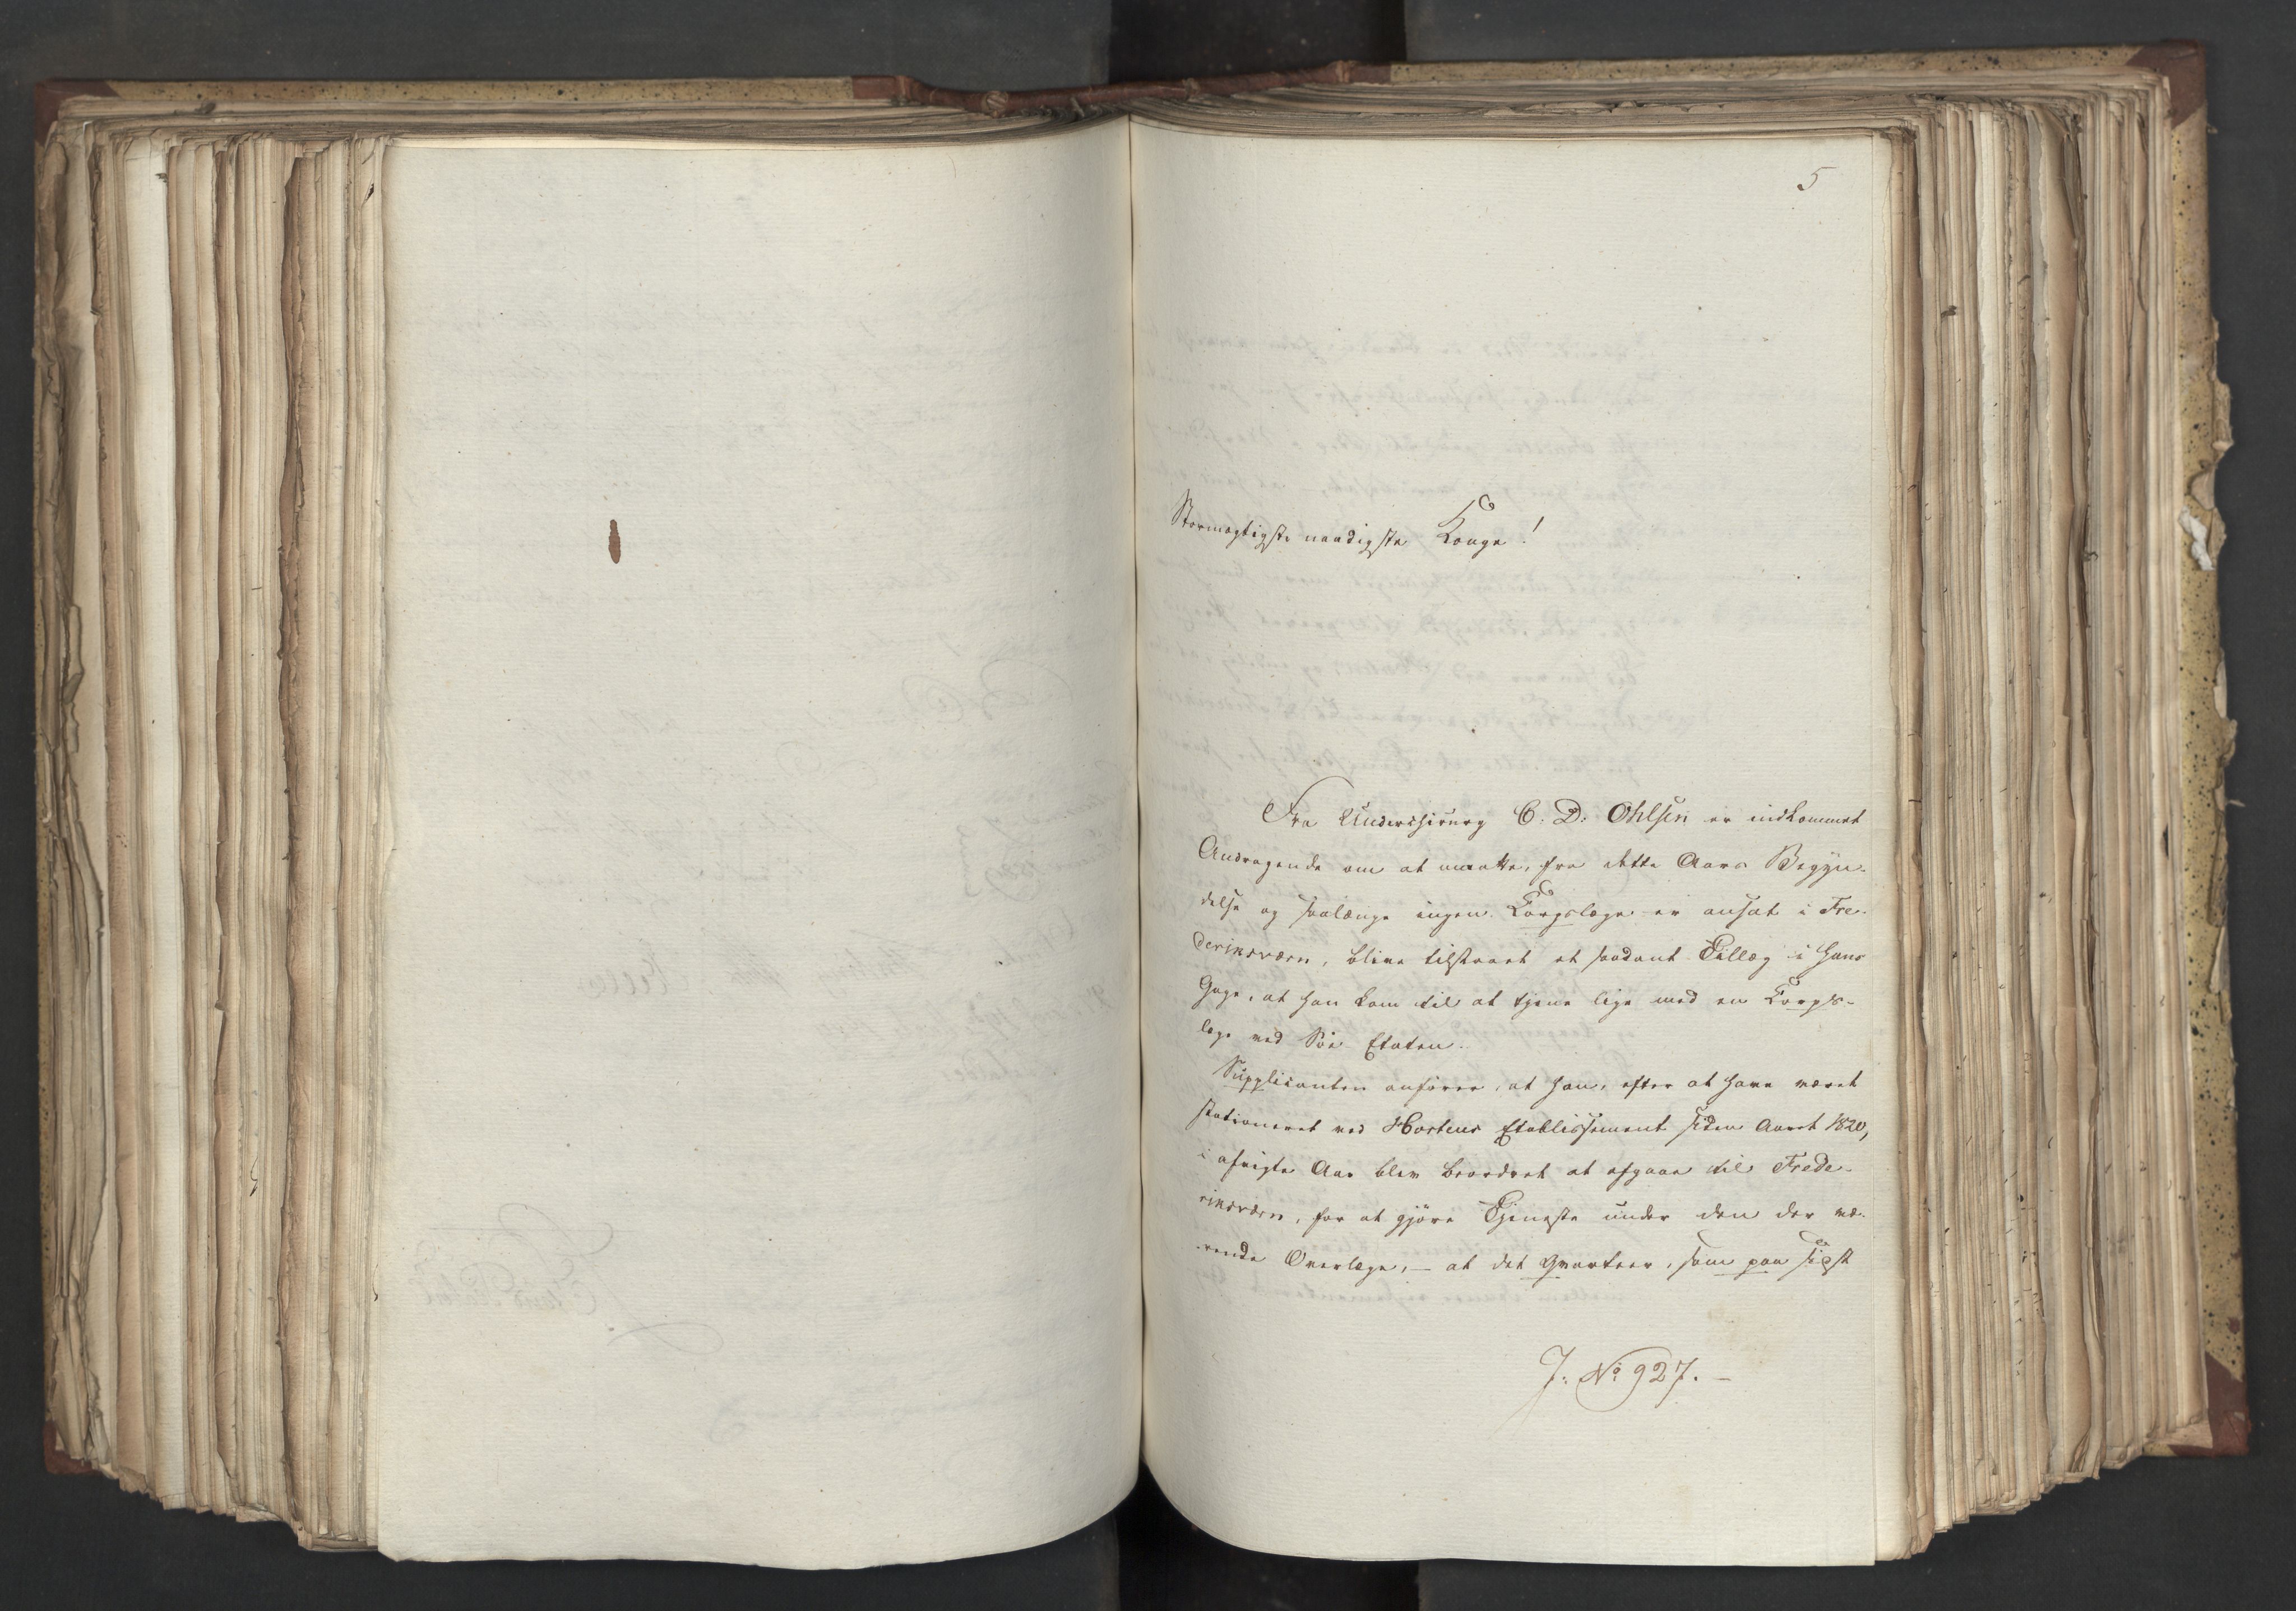 5
Stormægtigste naadigste Konge!
Fra Underchirurg C. D. Ohlsen er indkommet
Andragende om at maatte, fra dette Aars Begyn-
delse og saalænge ingen Corpslæge er ansat i Fre-
deriksværn, blive tilstaaet et saadant Tillæg i hans
Gage, at han kom til at tjene lige med en Corps-
læge ved Søe-Etaten.
Supplicanten anfører, at han, efter at have været
stationeret ved Hortens Etablissement siden Aaret 1820,
i afvigte Aar blev beordret at afgaae til Frede-
riksværn, for at gjöre Tjeneste under den der væ-
rende Overlæge, – at det Qvarteer, som paa sidst
J: No 927. –